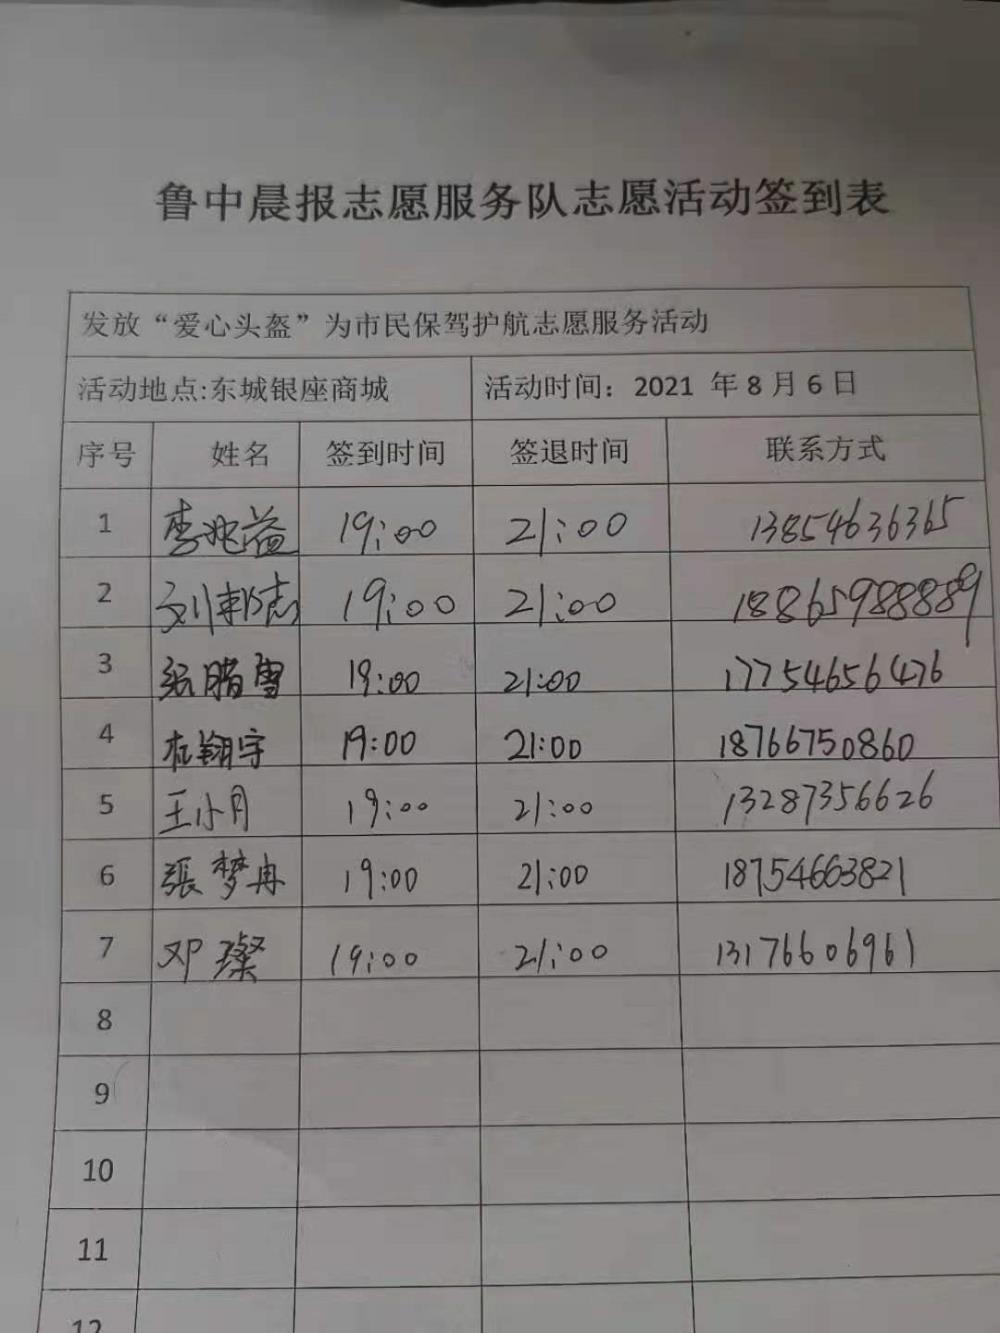 鲁中晨报志愿服务队志愿活动签到表
发放“爱心头盔”为市民保驾护航志愿服务活动
活动地点:东城银座商城 活动时间：2021 年 8 月 6 日
序号 姓名 签到时间 签退时间 联系方式
1 李兆益 19:00 21:00 13854636365
2 刘邦志 19:00 21:00 18865988889
3 张腊雪 19:00 21:00 17754656476
4 杜翔宇 19:00 21:00 18766750860
5 王小月 19:00 21:00 13287356626
6 張梦冉 19:00 21:00 18754663821
7 邓璨 19:00 21:00 13176606961
8
9
10
11
12